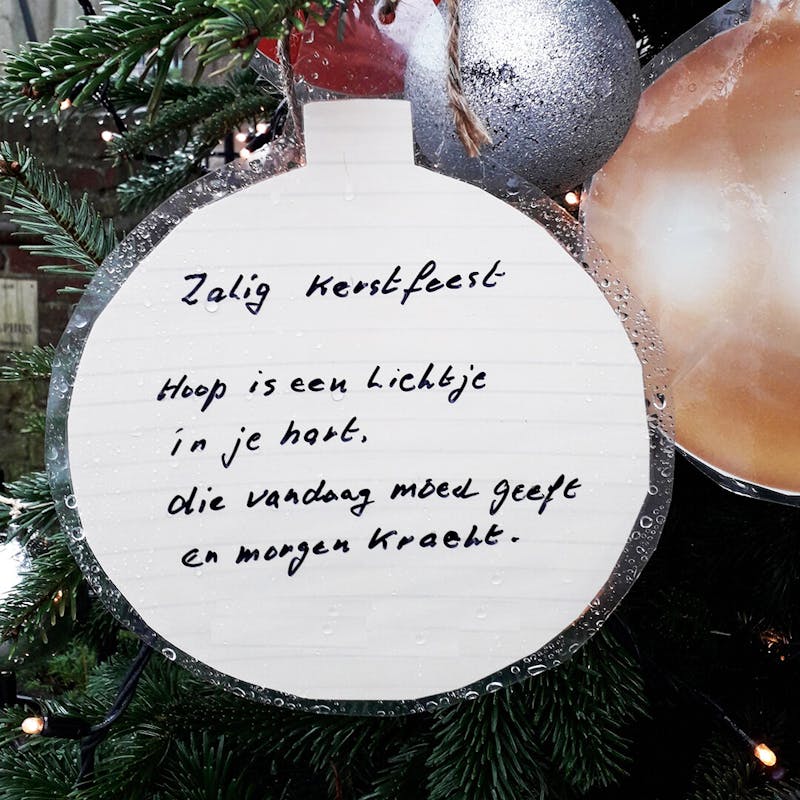 Zalig Kerstfeest
Hoop is een Lichtje
in je hart,
die vandaag moed geeft
en morgen Kracht.